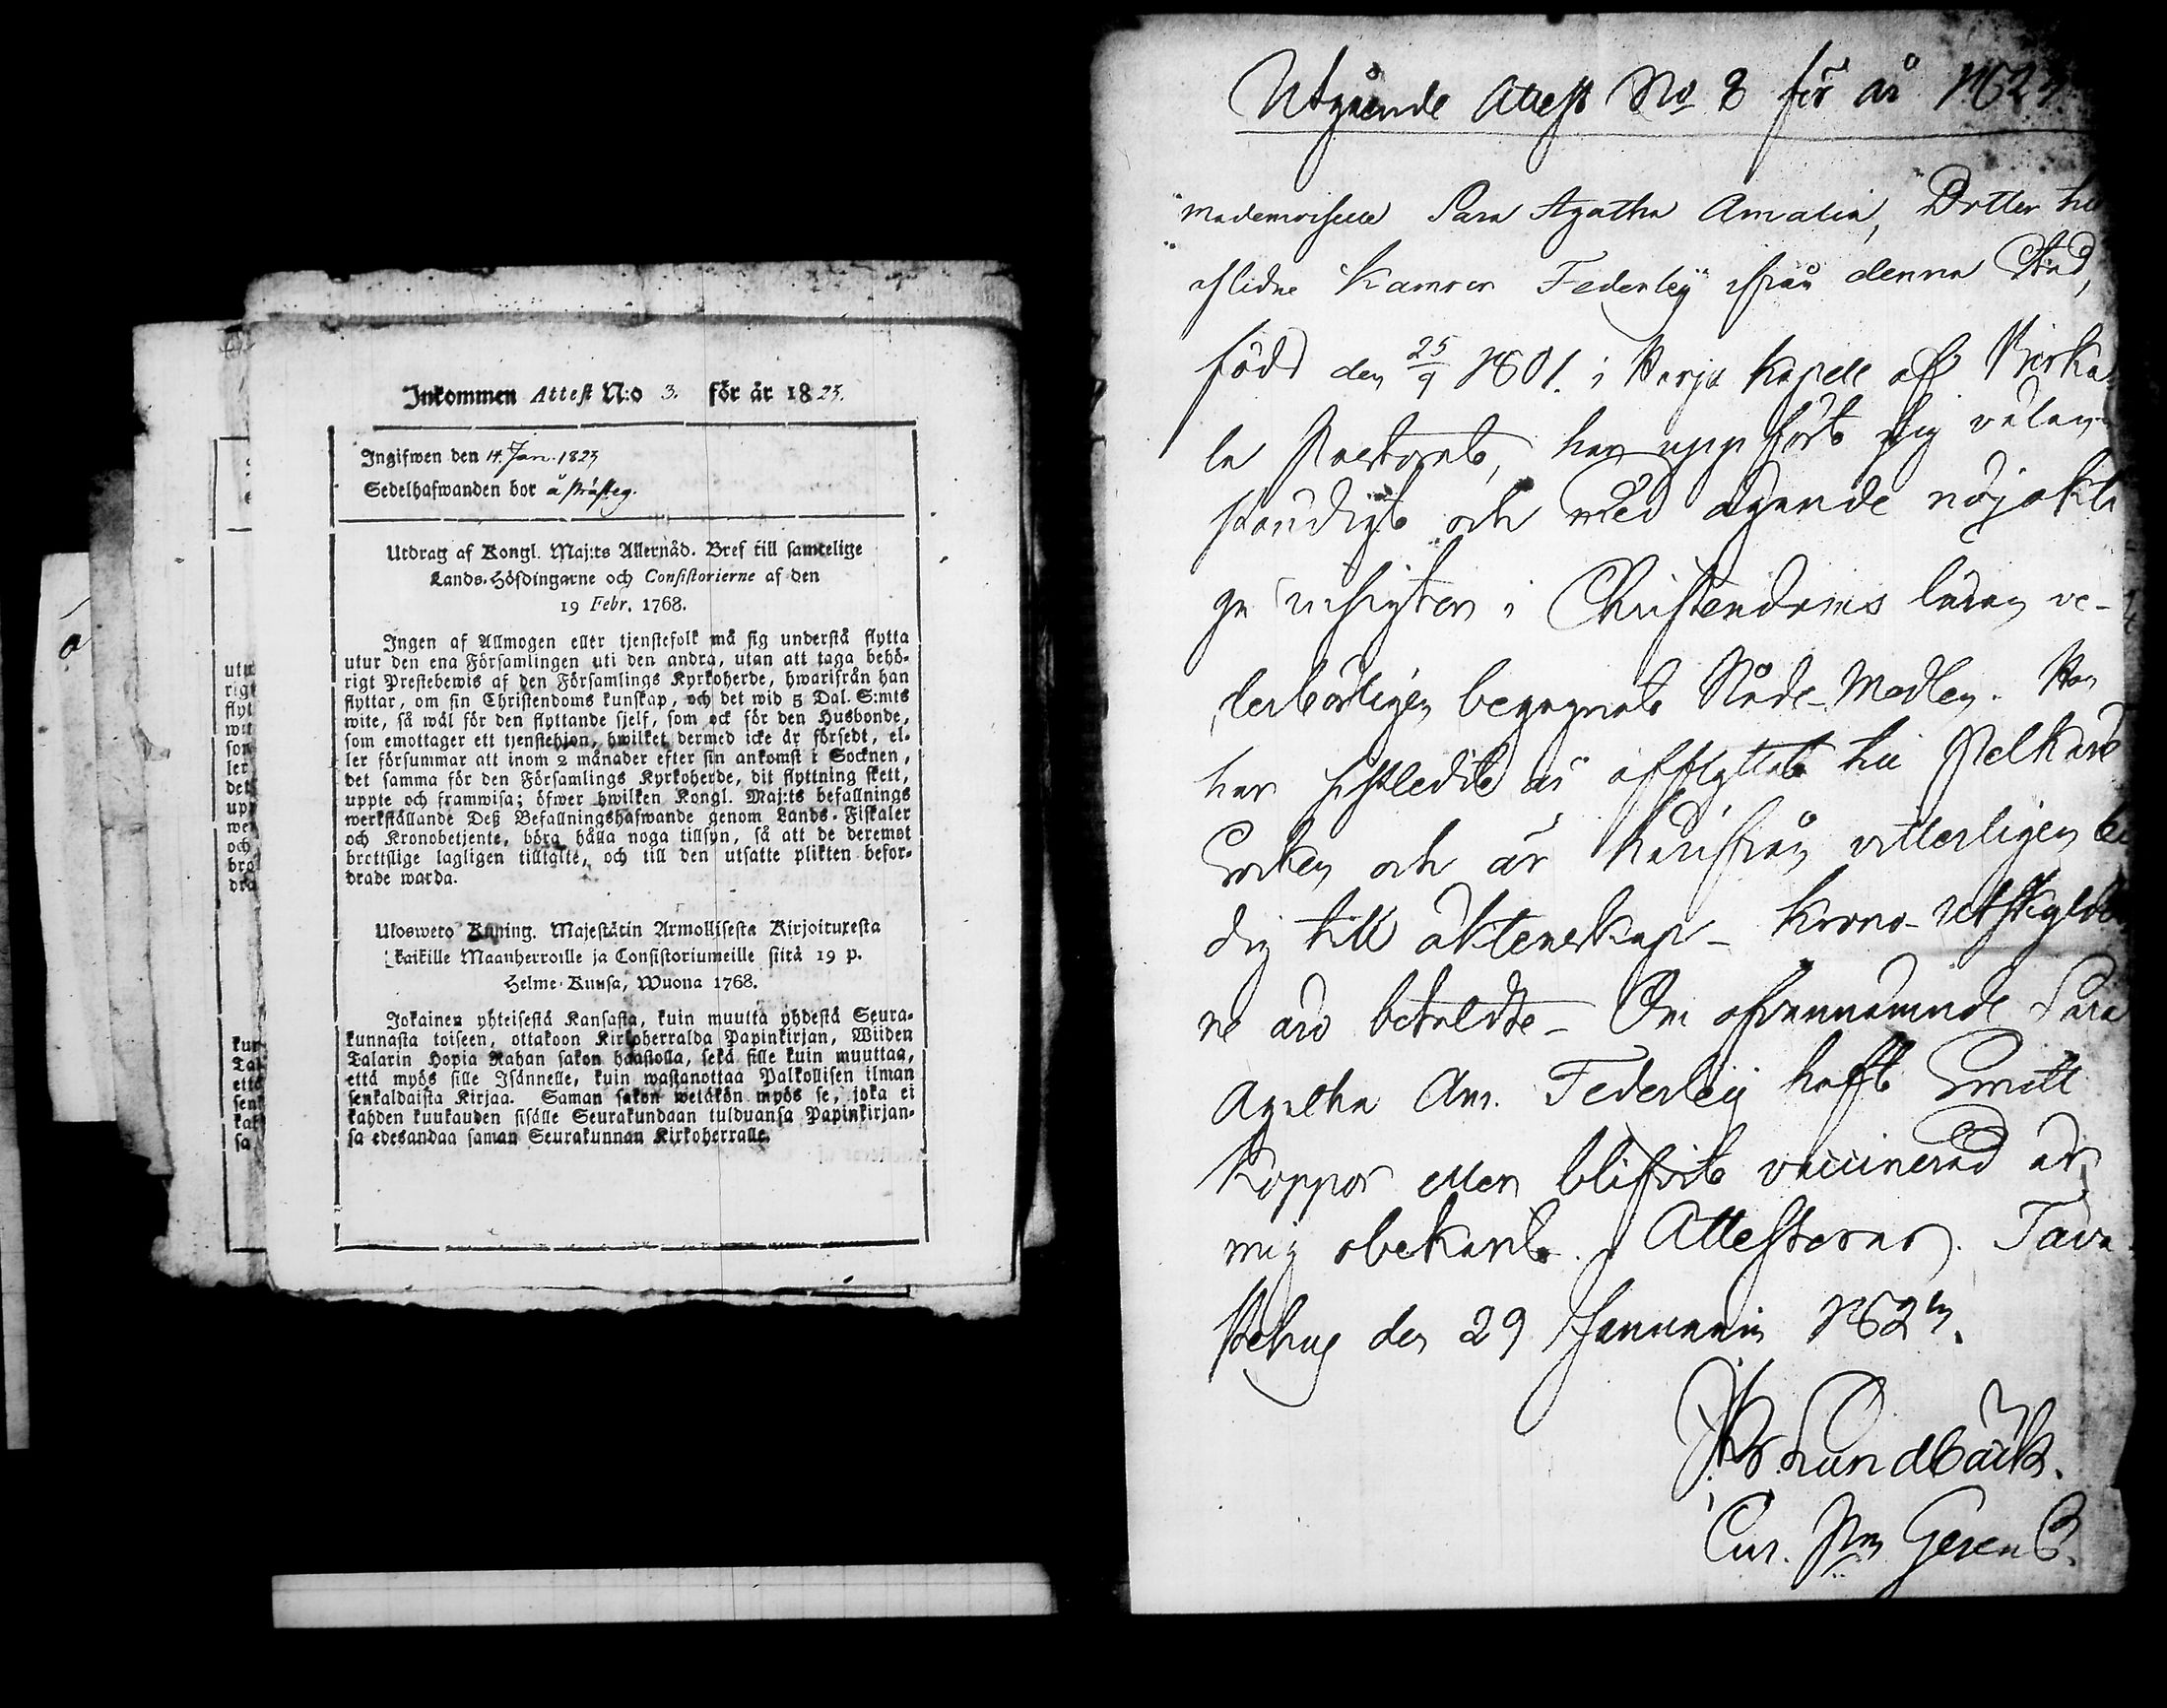 Inkommen Attest N:o 3. för år 1823.
Ingifwen den 14 Jan. 1823
Sedelhafwanden bor å
Utdrag af Kongl. Maj:ts Allernåd. Bref till samtelige
Lands-Höfdingarne och Consistorierne af den
19 Febr. 1768.
Ingen af Allmogen eller tjenstefolk må sig understå flytta
utur den ena Församlingen uti den andra, utan att taga behö-
rigt Prestebewis af den Församlings Kyrkoherde, hwarifrån han
flyttar, om sin Christendoms kunskap, och det wid 5 Dal. S:mts
wite, så wäl för den flyttande sjelf, som ock för den Husbonde,
som emottager ett tjenstehjon, hwilket dermed icke är försedt, el-
ler försummar att inom 2 månader efter sin ankomst i Socknen,
det samma för den Församlings Kyrkoherde, dit flyttning skett,
uppte och framwisa; öfwer hwilken Kongl. Maj:ts befallnings
werkställande Deß Befallningshafwande genom Lands-Fiskaler
och Kronobetjente, böra hålla noga tillsyn, så att de deremot
brottslige lagligen tilltalte, och till den utsatte plikten befor-
drade warda.
Ulosweto Kuning. Majestätin Armollisesta Kirjoituxesta
kaikille Maanherroille ja Consistoriumeille siitä 19 p.
Helme-Kuusa, Wuona 1768.
Jokainen yhteisestä Kansasta, kuin muutta yhdestä Seura-
kunnasta toiseen, ottakoon Kirkoherralda Papinkirjan, Wiiden
Talarin Hopia Rahan sakon haastolla, sekä sille kuin muuttaa,
että myös sille Isännelle, kuin wastanottaa Palkollisen ilman
senkaldaista Kirjaa. Saman sakon wetäkön myös se, joka ei
kahden kuukauden sisälle Seurakundaan tulduansa Papinkirjan-
sa edesandaa saman Seurakunnan Kirkoherralle.
Utgående Attest No 8 för år 1823
Mademoiselle Sara Agatha Amalia, Dotter till
aflidne Kamrer Federleÿ ifrån denna Stad,
född den 25/9 1801. i Harju Kapell af Birka-
la Pastorat, har uppfört sig välan-
ständigt och med ägande nöjakti-
ga insigter i Christendoms läran ve-
derbörligen begagnat Nåde-Medlen. Hon
har sistledit år afflyttat till Pelkäne
Socken och är härifrån vitterligen le-
dig till äktenskap - Krono-utskylder-
ne äro betaldte - Om ofvannämnde Sara
Agatha Am. Federleÿ haft Smitt
Koppor eller blifvit vaccinerad är
mig obekant. Attesterar. Tava-
stehus den 29 Januarii 1823.
Lundbäck.